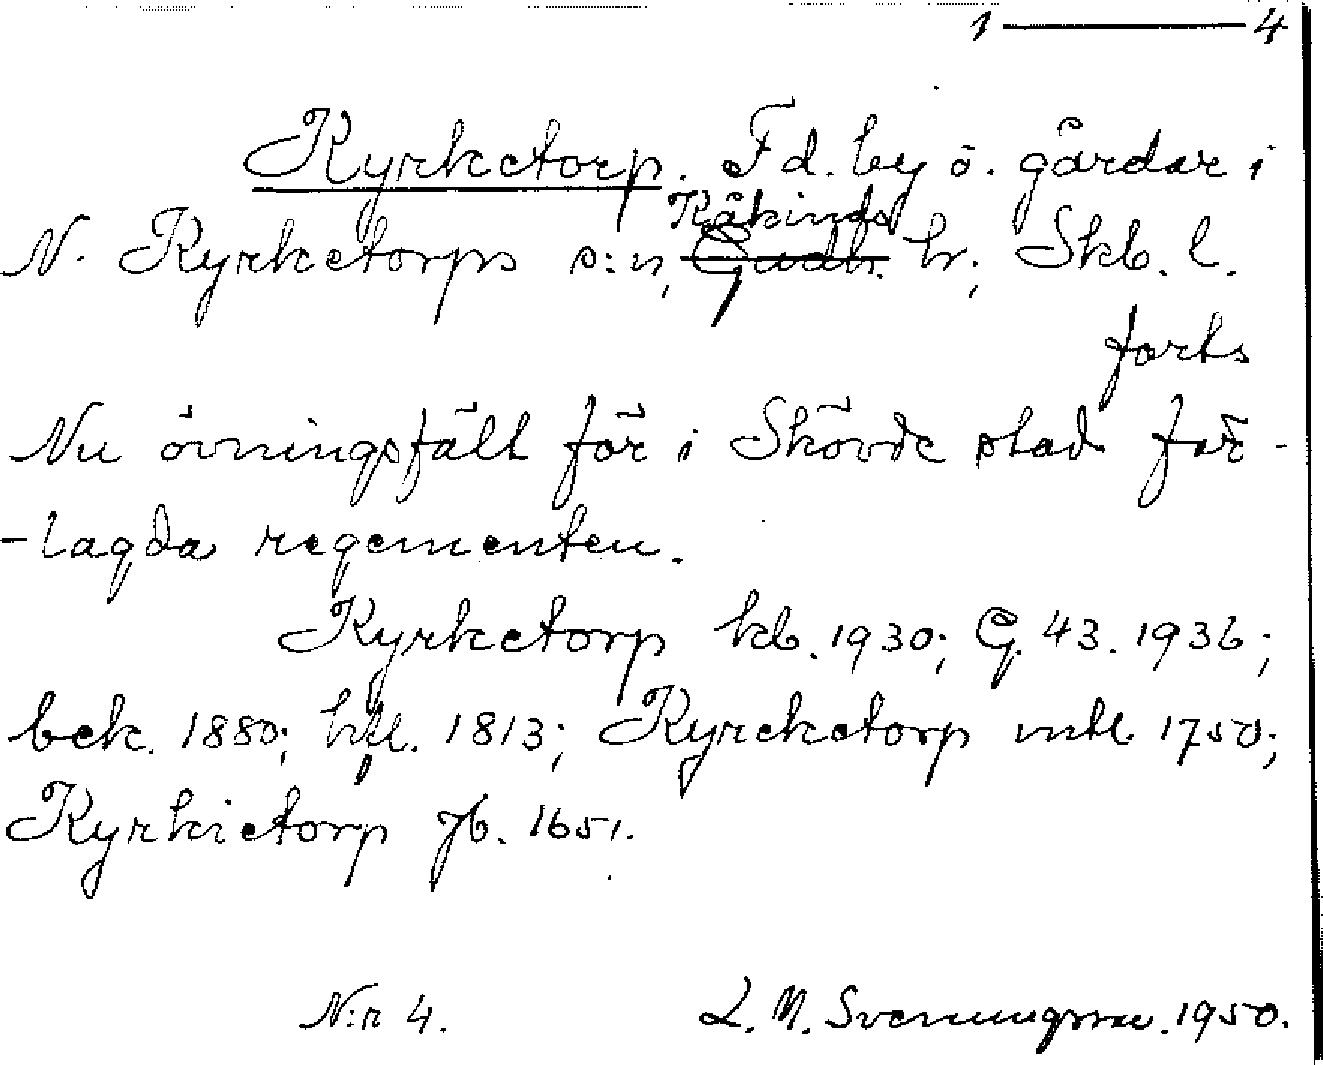 1 — 4
Kyrketorp. Fd. by o. gårdar i
Kåkinds
N. Kyrketorps s:n, Gudh. hr; Skb. l.
forts
Nu övningsfält för i Skövde stad för-
-lagda regementen.
Kyrketorp kb. 1930; G. 43. 1936;
bek. 1880; htl. 1813; Kyrcketorp mtl 1750;
Kyrkietorp jb. 1651.
N:r 4. L. M. Svenungsson. 1950.